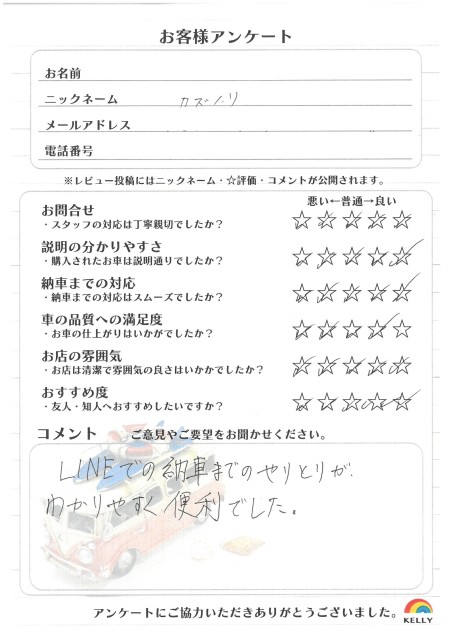 お客様アンケート
お名前
ニックネーム カズノリ
メールアドレス
電話番号
※レビュー投稿にはニックネーム・☆評価・コメントが公開されます。
悪い←普通→良い
お問合せ
・スタッフの対応は丁寧親切でしたか?
説明の分かりやすさ
・購入されたお車は説明通りでしたか?
納車までの対応
・納車までの対応はスムーズでしたか?
車の品質への満足度
・お車の仕上がりはいかがでしたか?
お店の雰囲気
・お店は清潔で雰囲気の良さはいかかでしたか?
おすすめ度
・友人・知人へおすすめしたいですか?
コメント ご意見やご要望をお聞かせください。
LINEでの納車までのやりとりが
わかりやすく便利でした。
アンケートにご協力いただきありがとうございました。
KELLY